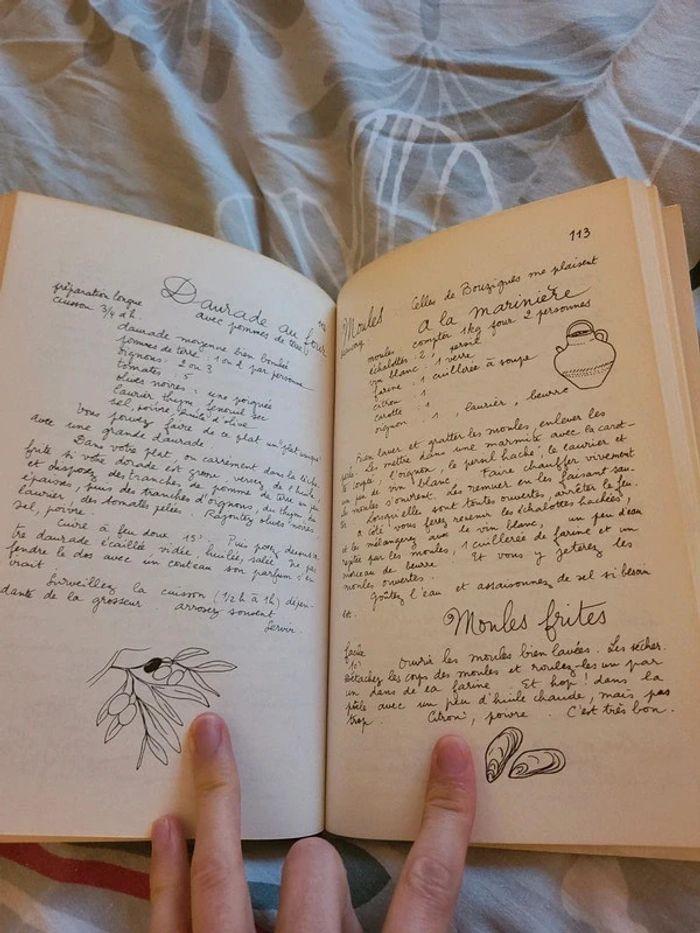 Daurade au four
avec pommes de terre
préparation longue
cuisson 3/4 d'h.
daurade moyenne bien boulée
pommes de terre : 1 ou 2 par personne
oignons : 2 ou 3
tomates : 5
olives noires : une poignée
laurier thym, fenouil sec
sel, poivre, huile d'olive
Vous pouvez faire de ce plat un "plat unique"
avec une grande daurade.
Dans votre plat, ou carrément dans la lèche-
frite si votre dorade est grosse, versez de l'huile,
et disposez des tranches de pomme de terre un peu
épaisses, puis des tranches d'oignons, du thym, du
laurier, des tomates pelées. Rajoutez olives noires
sel, poivre.
Cuire à feu doux 15'. Puis posez dessus vo-
tre daurade écaillée vidée, huilée, salée. Ne pas
fendre le dos avec un couteau son parfum s'en
irait.
Surveillez la cuisson (1/2 h à 1h) dépen-
dante de la grosseur. arrosez souvent
Servir.
113
Celles de Bouzigues me plaisent
Moules à la marinière
moules : compter 1kg pour 2 personnes
échalottes : 2, persil
vin blanc : 1 verre
farine : 1 cuillerée à soupe
citron : 1
carotte : 1
oignon : 1, laurier, beurre
Bien laver et gratter les moules, enlever les
Les mettre dans une marmite avec la carot-
te coupée, l'oignon, le persil haché, le laurier et
un peu de vin blanc. Faire chauffer vivement
les moules s'ouvrent. Les remuer en les faisant sau-
Lorsqu'elles sont toutes ouvertes, arrêter le feu.
à côté vous ferez revenir les échalottes hachées,
et les mélangerez avec le vin blanc, un peu d'eau
rejetée par les moules, 1 cuillerée de farine et un
morceau de beurre. Et vous y jeterez les
moules ouvertes.
Goûtez l'eau et assaisonnez de sel si besoin
est.
Moules frites
facile
10'
Ouvrir les moules bien lavées. Les sécher.
Détachez les corps des moules et roulez-les un par
un dans de la farine. Et hop! dans la
poêle avec un peu d'huile chaude, mais pas
trop. Citron, poivre. C'est très bon.